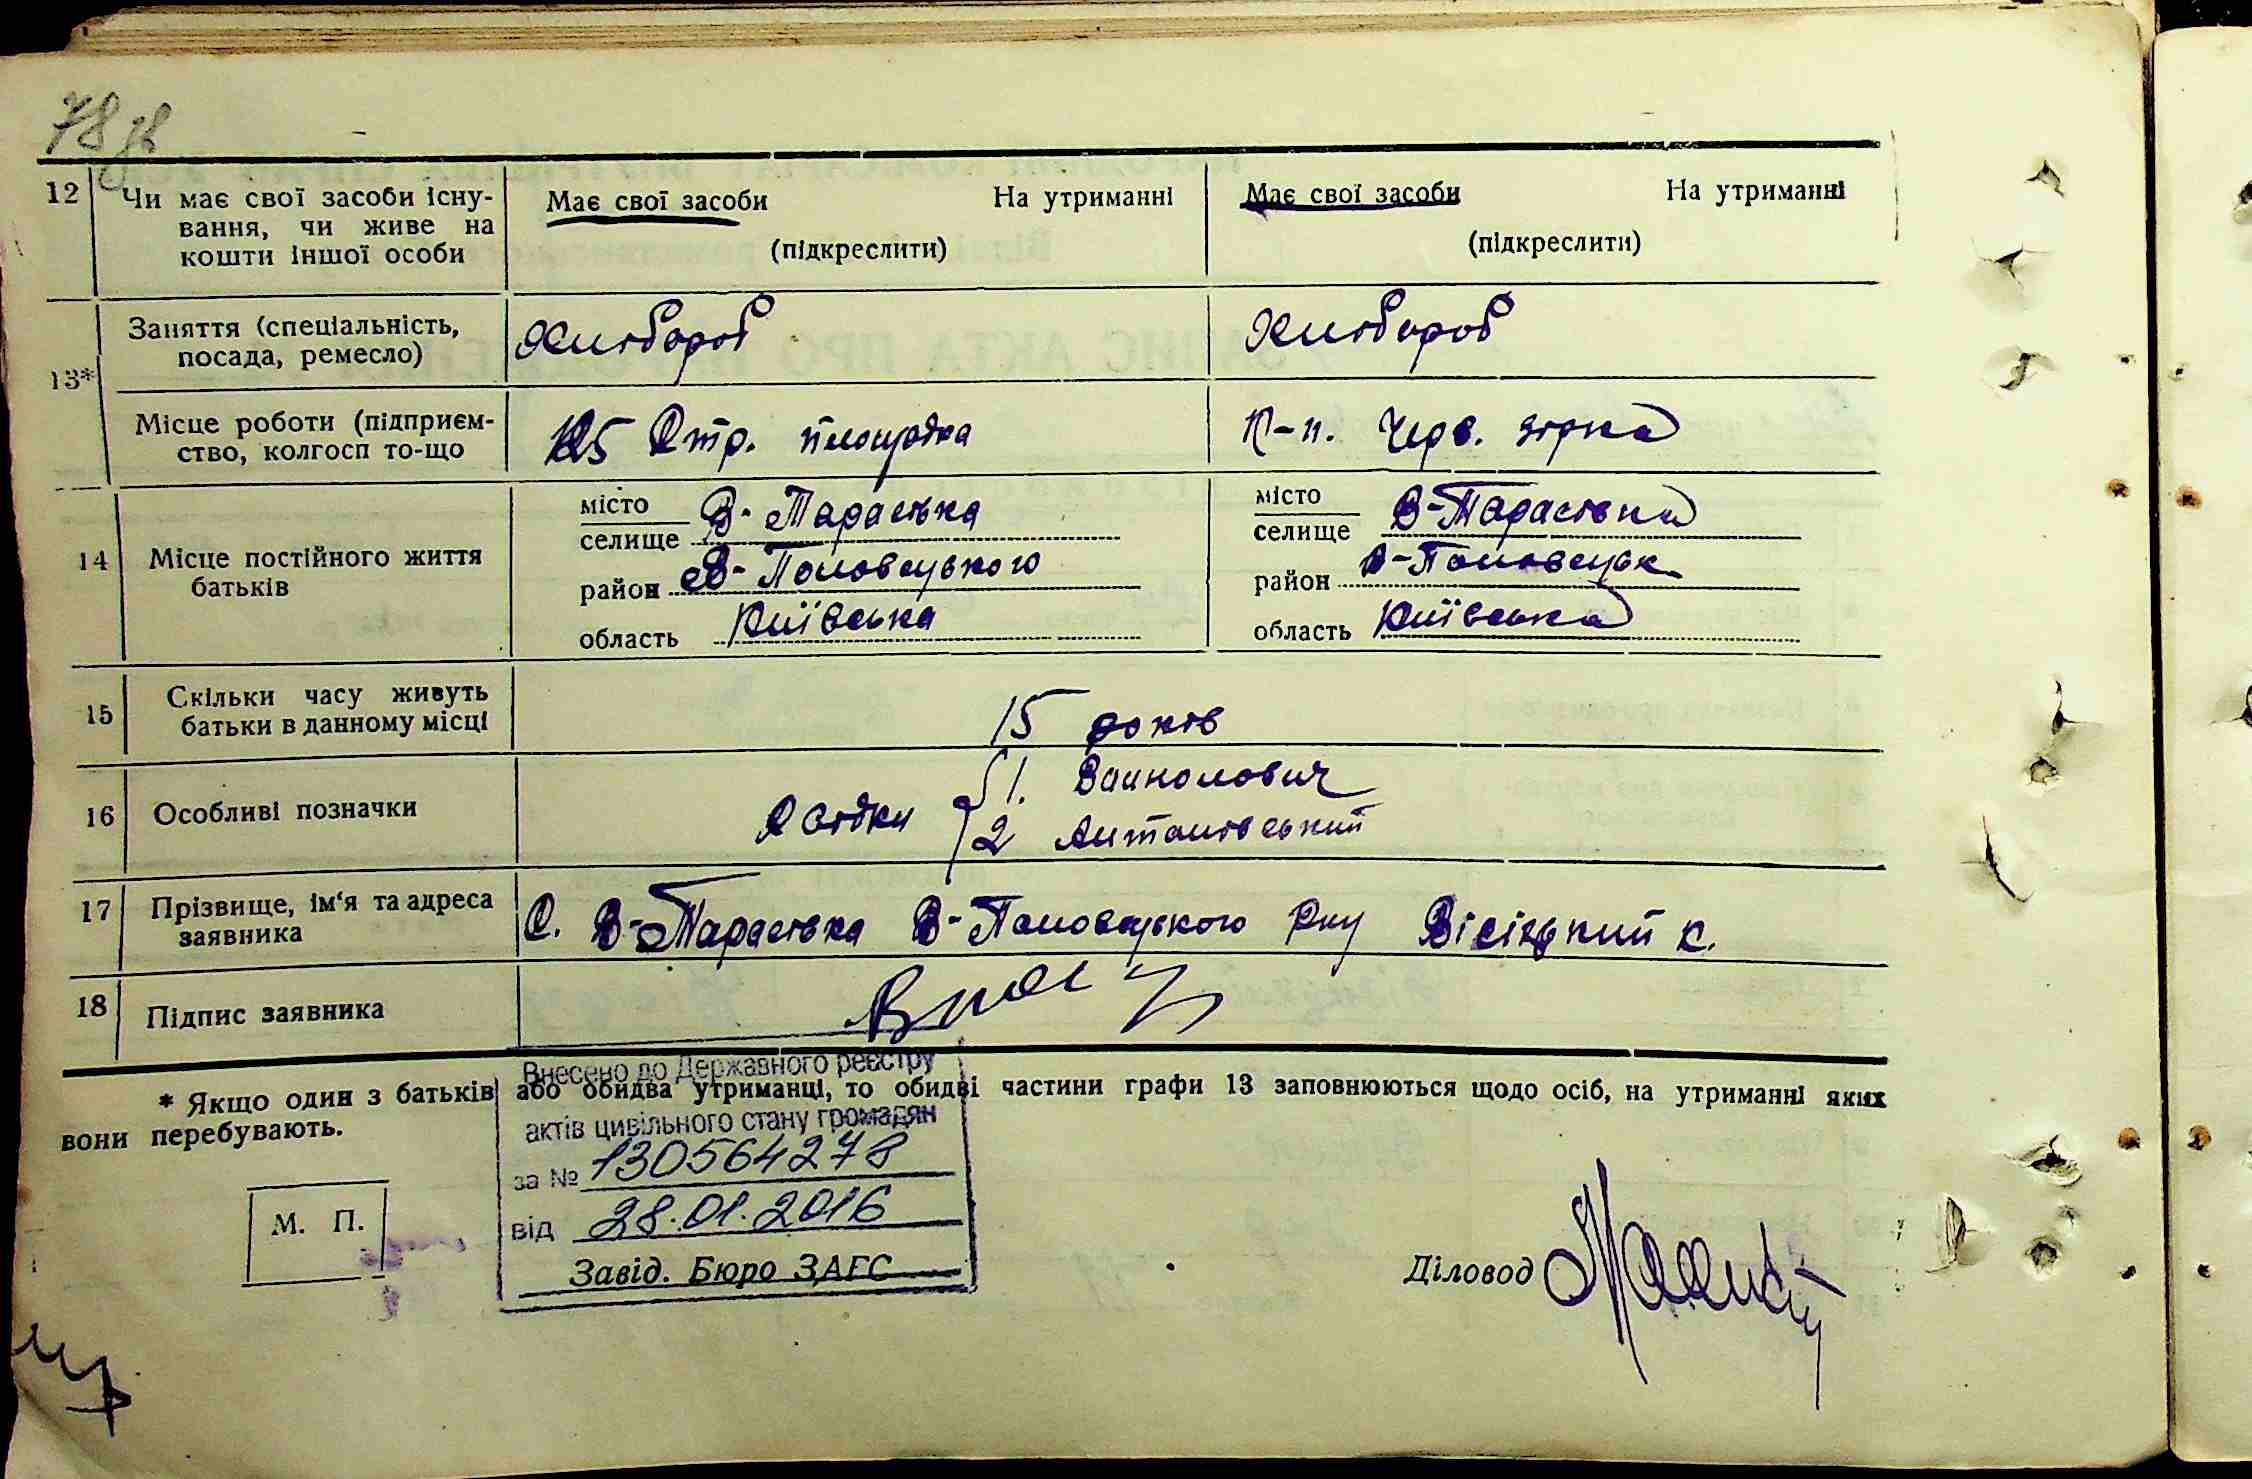 78 зв
12 Чи має свої засоби існу- Має свої засоби На утриманні Має свої засоби На утриманні
вання, чи живе на
кошти іншої особи (підкреслити) (підкреслити)
13* Заняття (спеціальність, Хлібороб Хлібороб
посада, ремесло)
Місце роботи (підприєм- 125 Стр. площадка К-п. Черв. зірка
ство, колгосп то-що
14 Місце постійного життя батьків
місто селище В-Тарасівка місто селище В-Тарасівка
район В-Половецького район В-Половецьк.
область Київська область Київська
15 Скільки часу живуть 15 років
батьки в данному місці
16 Особливі позначки Свідки 1. Ваинолович
2 Антонівський
17 Прізвище, ім'я та адреса С. В-Тарасівка В-Половецького р-ну Вісіцький к.
заявника
18 Підпис заявника
* Якщо один з батьків або обидва утриманці, то обидві частини графи 13 заповнюються щодо осіб, на утриманні яких
вони перебувають.
Внесено до Державного реєстру
актів цивільного стану громадян
за № 130564278
від 28.01.2016
Завід. Бюро ЗАГС
М. П.
Діловод